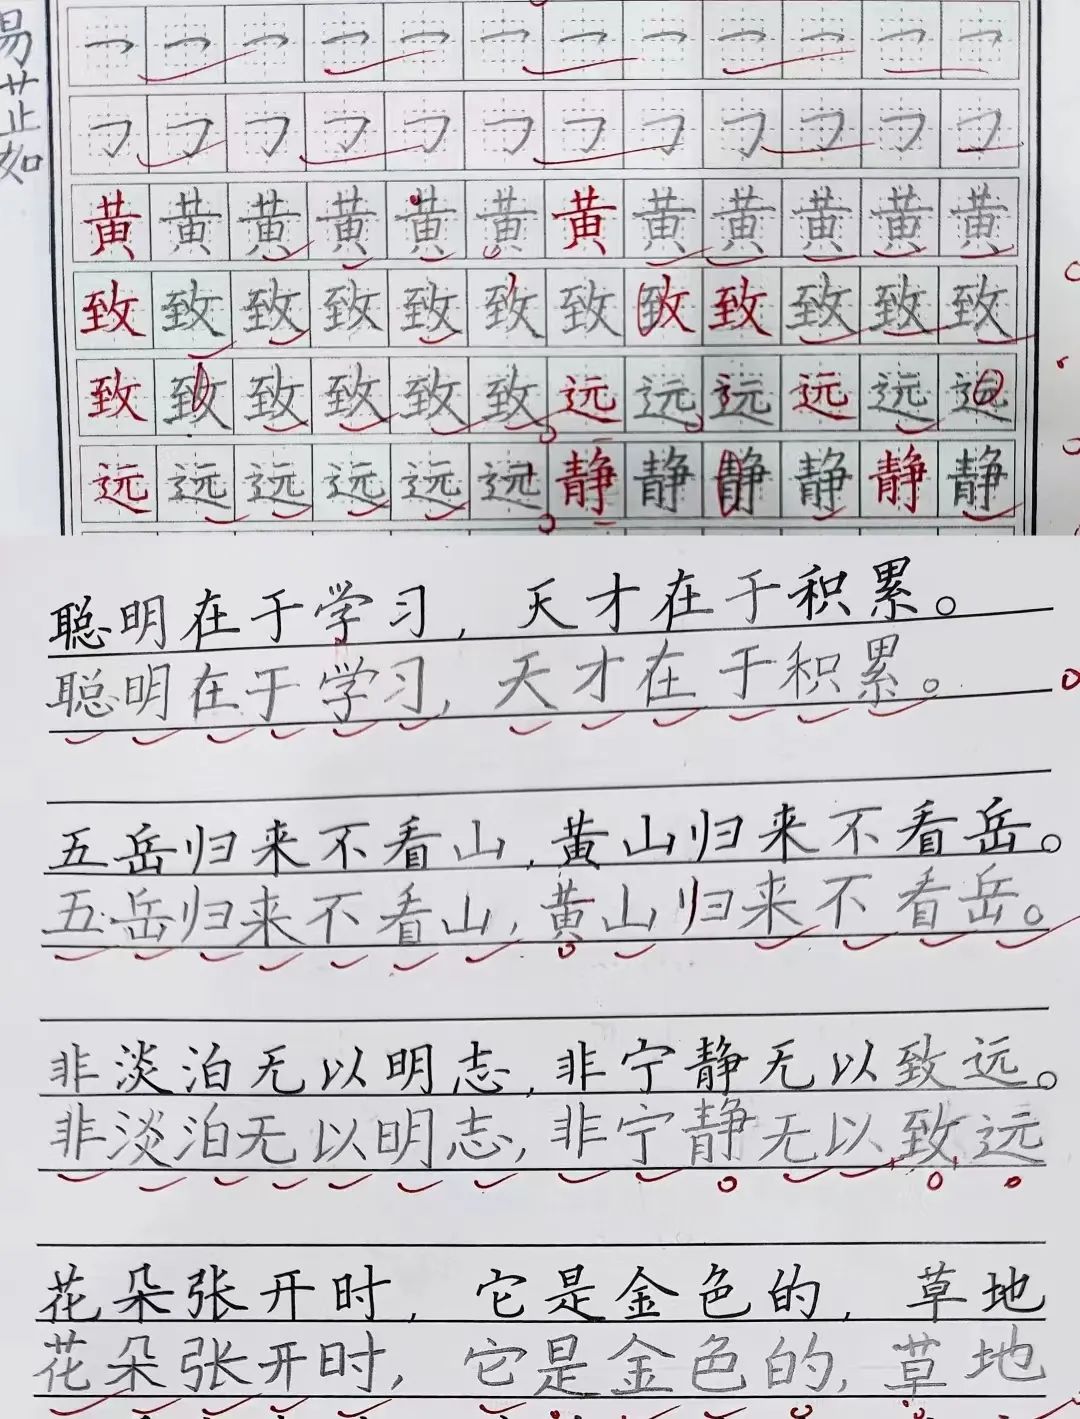 易芷如
黄黄黄黄黄黄黄黄黄黄黄黄
致致致致致致致致致致致致
致致致致致致远远远远远远
远远远远远远静静静静静静
聪明在于学习，天才在于积累。
聪明在于学习，天才在于积累。
五岳归来不看山，黄山归来不看岳。
五岳归来不看山，黄山归来不看岳。
非淡泊无以明志，非宁静无以致远。
非淡泊无以明志，非宁静无以致远
花朵张开时，它是金色的，草地
花朵张开时，它是金色的，草地